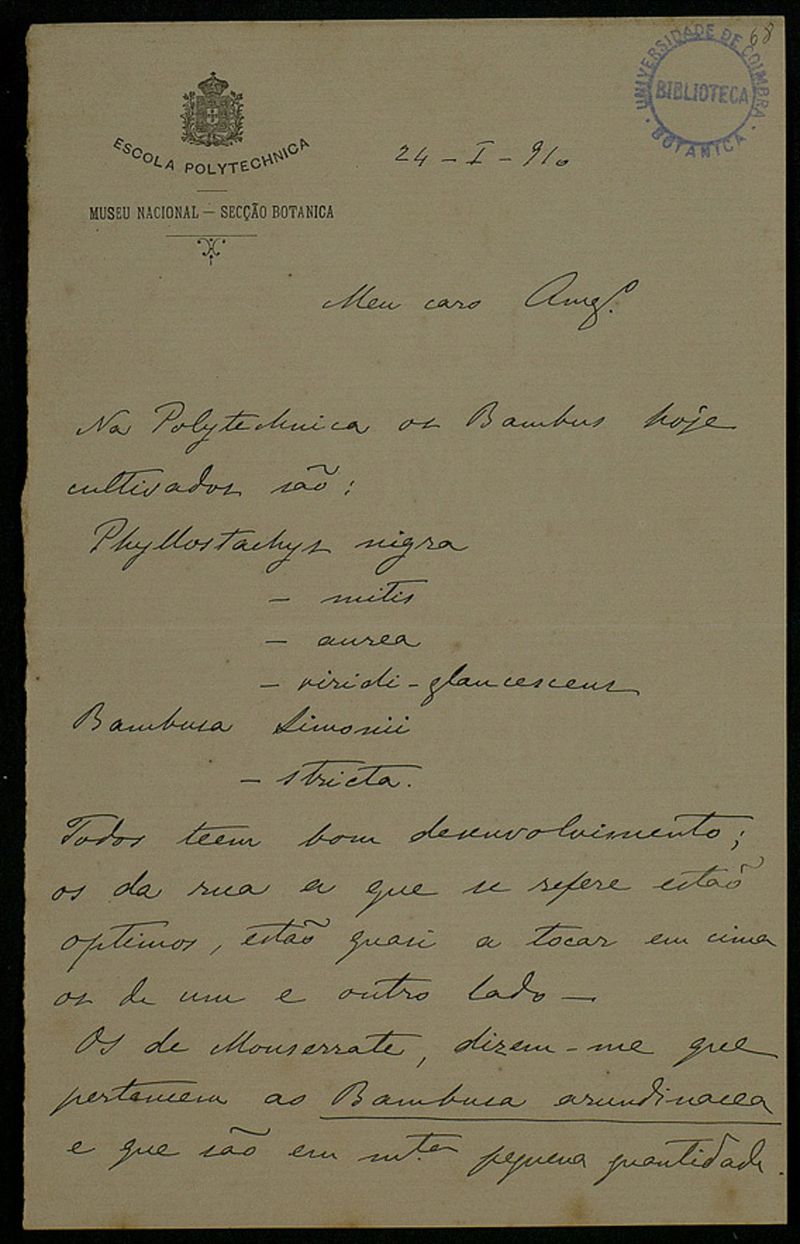 68
UNIVERSIDADE DE COIMBRA
BIBLIOTECA
BOTANICA
ESCOLA POLYTECHNICA
MUSEU NACIONAL — SECÇÃO BOTANICA
24 - I - 910
Meu caro Amgº.
Na Polytechnica os Bambus hoje
cultivados são:
Phyllostachys nigra
— mitis
— aurea
— viridi-glaucescens
Bambusa Simonii
— stricta.
Todos teem bom desenvolvimento;
os da rua a que se refere estão
optimos, estão quasi a tocar em cima
os de um e outro lado —
Os de Monserrate, dizem-me que
pertencem ao Bambusa arundinacea
e que são em mta pequena quantidade.